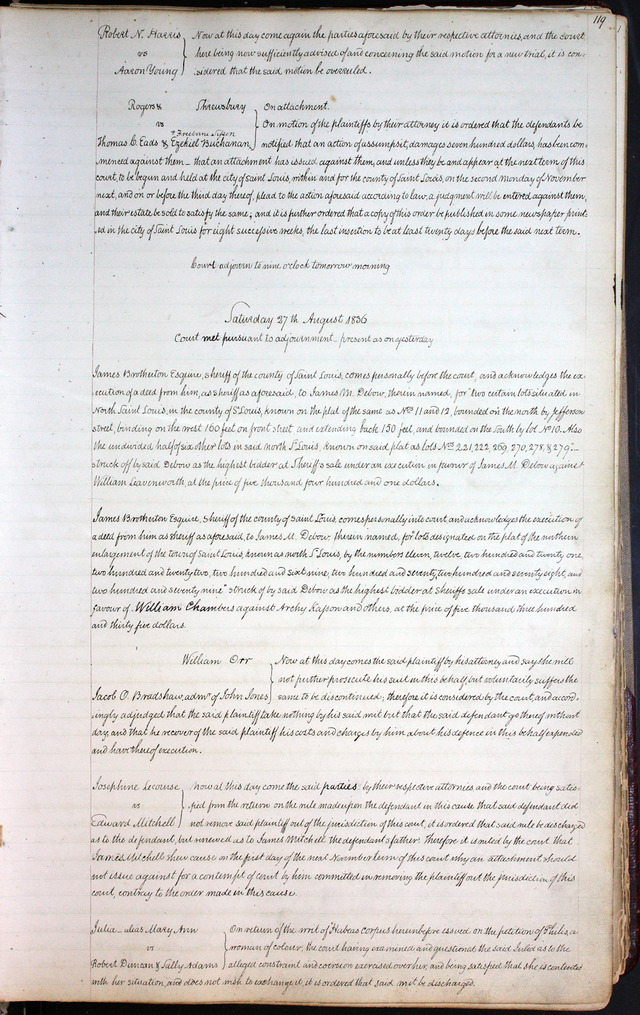 119
Robert N. Harris } Now at this day come again the parties aforesaid by their respective attornies, and the court
vs } here being now sufficiently advised of and concerning the said motion for a new trial, it is con-
Aaron Young } sidered that the said motion be overruled.
Rogers & Shrewsbury } On attachment.
vs } On motion of the plaintiffs by their attorney it is ordered that the defendants be
Thomas C. Eads & Ezekiel Buchanan } notified that an action of assumpsit, damages seven hundred dollars, has been com-
menced against them_ that an attachment has issued against them, and unless they be and appear at the next term of this
court, to be begun and held at the city of Saint Louis, within and for the county of Saint Louis, on the second Monday of November
next, and on or before the third day thereof, plead to the action aforesaid according to law, a judgment will be entered against them,
and their estate be sold to satisfy the same; and it is further ordered that a copy of this order be published in some newspaper print-
ed in the city of Saint Louis for eight successive weeks, the last insertion to be at least twenty days before the said next term.
Court adjourn to nine o'clock tomorrow morning
Saturday 27th August 1836
Court met pursuant to adjournment_ present as on yesterday
James Brotherton Esquire, sheriff of the county of Saint Louis, comes personally before the court, and acknowledges the ex-
ecution of a deed from him, as sheriff as aforesaid, to James M. Debow, therein named, for two certain lots situated in
North Saint Louis, in the county of St Louis, known on the plat of the same as Nos 11 and 12, bounded on the north by Jefferson
street, binding on the west 160 feet on front street and extending back 130 feet, and bounded on the south by lot No 10. Also
the undivided half of six other lots in said north St Louis, known on said plat as lots Nos 221, 222, 269, 270, 278, & 279_
struck off by said Debow as the highest bidder at Sheriff's sale under an execution in favour of James M. Debow against
William Leavenworth, at the price of five thousand four hundred and one dollars.
James Brotherton Esquire, Sheriff of the county of Saint Louis, comes personally into court and acknowledges the execution of
a deed from him as sheriff as aforesaid, to James M. Debow, therein named, for lots designated on the plat of the northern
enlargement of the town of Saint Louis, known as north St Louis, by the numbers eleven, twelve, two hundred and twenty one,
two hundred and twenty two, two hundred and sixty nine, two hundred and seventy, two hundred and seventy eight, and
two hundred and seventy nine" struck off by said Debow as the highest bidder at Sheriff's sale under an execution in
favour of William Chambers against Archy Kasson and others, at the price of five thousand three hundred
and thirty five dollars.
William Orr } Now at this day comes the said plaintiff by his attorney and says he will
vs } not further prosecute his suit in this behalf but voluntarily suffers the
Jacob O. Bradshaw, admr of John Jones } same to be discontinued; therefore it is considered by the court, and accord-
ingly adjudged that the said plaintiff take nothing by his said writ but that the said defendant go thereof without
day, and that he recover of the said plaintiff his costs and charges by him about his defence in this behalf expended
and have thereof execution.
Josephine Lecourse } Now at this day come the said parties by their respective attornies and the court being satis-
vs } fied from the return on the rule made upon the defendant in this cause that said defendant did
Edward Mitchell } not remove said plaintiff out of the jurisdiction of this court, it is ordered that said rule be discharged
as to the defendant, but renewed as to James Mitchell the defendant's father. Therefore it is ruled by the court that
James Mitchell shew cause on the first day of the next November term of this court why an attachment should
not issue against for a contempt of court by him committed in removing the plaintiff out the jurisdiction of this
court, contrary to the order made in this cause.
Julia alias Mary Ann } On return of the writ of Habeas corpus hereinbefore issued on the petition of Philis a
vs } woman of colour, the court having examined and questioned the said Julia as to the
Robert Duncan & Sally Adams } alleged constraint and coercion exercised over her, and being satisfied that she is contented
with her situation, and does not wish to exchange it, it is ordered that said writ be discharged.